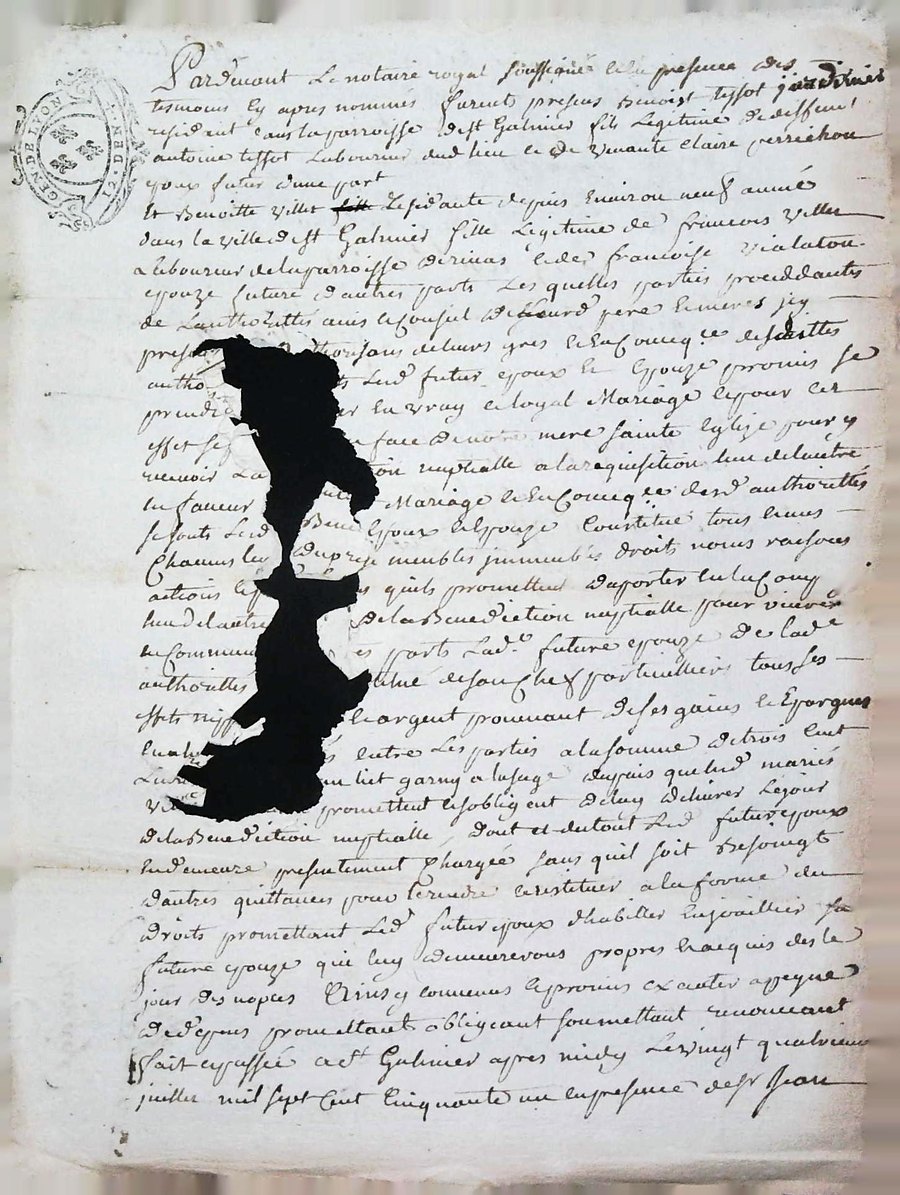 GEN. DE LYON
Pardevant Le notaire royal soussigné et en presence des
tesmoins cy apres nommés furent presens Benoist tissot jardinier
residant dans la parroisse de st Galmier fils Legitime de deffunt
antoine tissot Laboureur dud lieu et de vivante claire perrichon
epoux futur d'une part
Et Benoitte villet Residante depuis Environ neuf année
dans la ville de st Galmier fille Legitime de francois villet
Laboureur de la parroisse de et de françoise vialaton
epouze future d'autres parts Les quelles parties proceddantes
de Lauthorittés avis et Conseil de leurd pere et meres jcy
presens authorisans de leurs gres et En Conseqce desdittes
autho Led futur epoux et Epouze promis se
prendre En vray et loyal Mariage et pour cet
effet se face de notre mere sainte Eglize pour y
recevoir La nuptialle a la requisition Lun de lautre
En faveur Mariage et En Conseqce desd authorittés
se sont Led Epoux et Epouze Constitué tous et uns
Chacuns les meubles jmmeubles droits noms raisons
actions et quils promettent daporter En la Comp
lun de lautre de la Benediction nuptialle pour vivre
En Commun parts Lad. future epouze de lade
authorittés de son Chef particulliers tous ses
effets et argent provenant de ses gains et Epargnes
Entre Les parties a la somme de trois Cent
un lit garny a lusage du pais que led mariés
promettent et sobligent de luy delivrer Le jour
de la Benediction nuptialle, dont et du tout Led futur epoux
En demeure presentement Chargée sans quil soit Besoingt
dautres quittances pour Le rendre et restituer a la forme du
droits promettant Led futur epoux dhabiller Enjoailler sa
future epouze que luy demeureront propres et acquis des le
jour des nopces Ainsy convenus et promis executer a peyne
de depens promettant obligeant soumettant renonceant
fait et passée a st Galmier apres midy Le vingt quatrieme
juillet mil sept Cent Cinquante un en presence de sr Jean